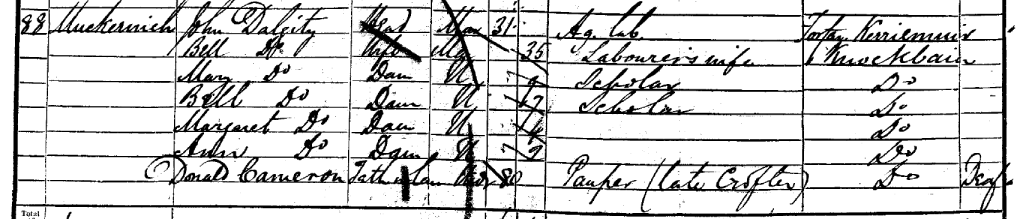 88 Muckernich John Dalgity Head Mar 31 Ag. Lab. Forfar Kerriemuir
Bell Do Wife Mar 35 Labourer's wife Knockbain
Mary Do Daur U 9 Scholar Do
Bell Do Daur U 7 Scholar Do
Margaret Do Daur U 4 Do
Ann Do Daur U Do
Donald Cameron Father in Law 80 Pauper (late Crofter) Do Deaf
Total